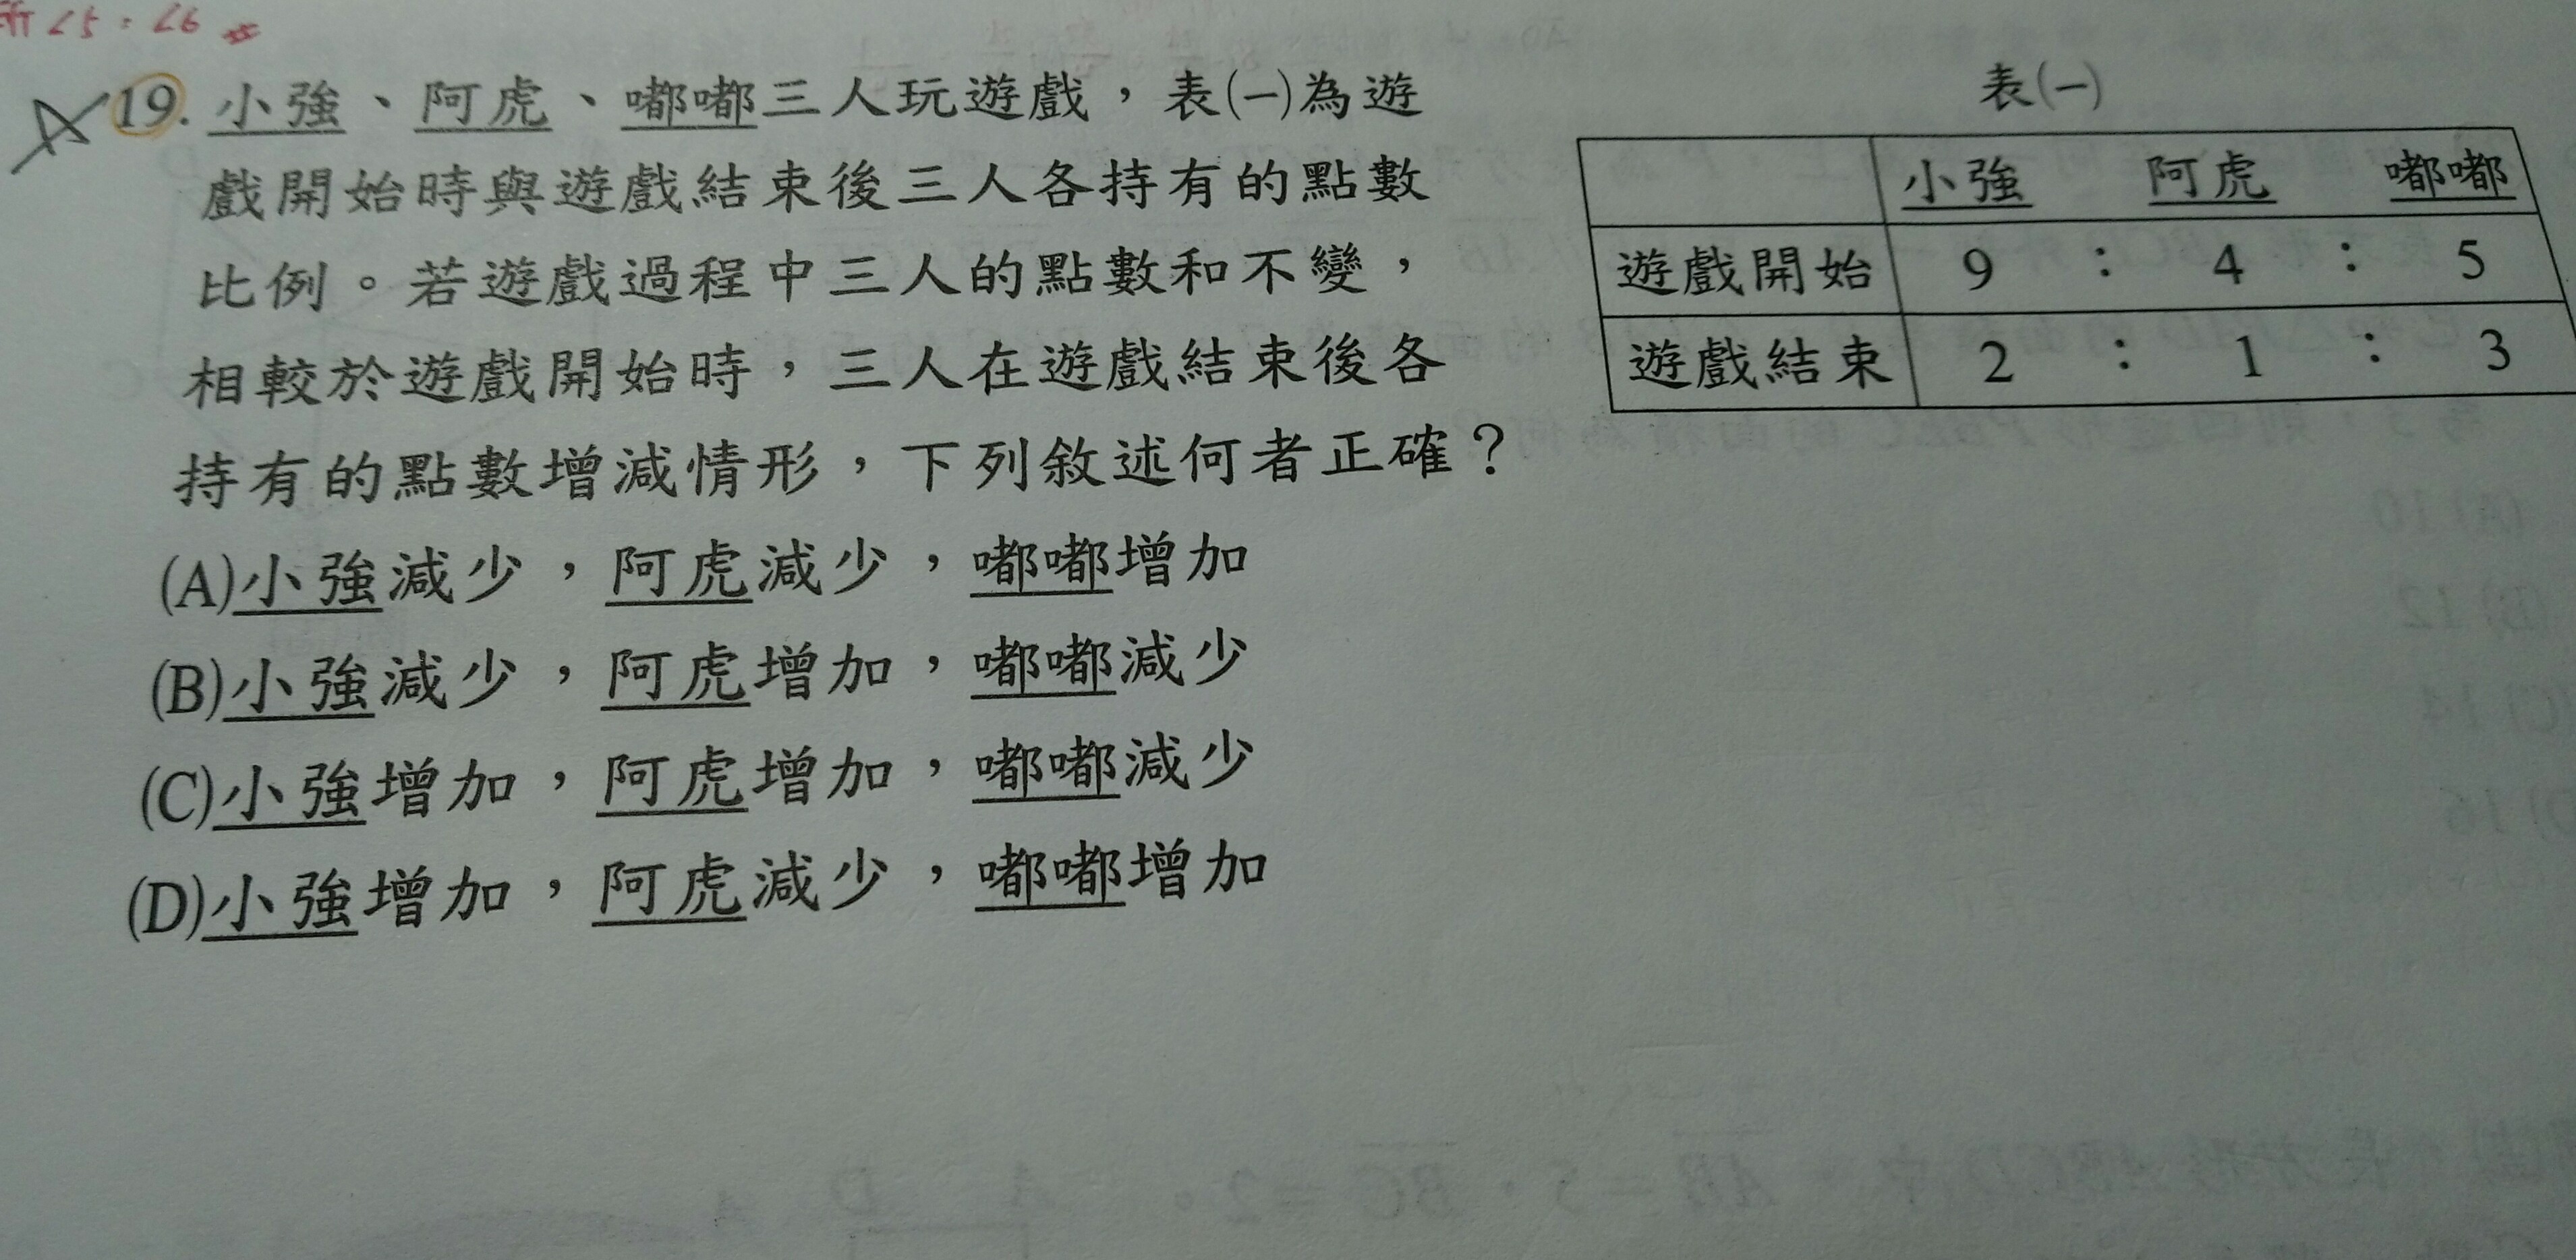 ∠5 = ∠6
19. 小強、阿虎、嘟嘟三人玩遊戲，表(一)為遊
戲開始時與遊戲結束後三人各持有的點數
比例。若遊戲過程中三人的點數和不變，
相較於遊戲開始時，三人在遊戲結束後各
持有的點數增減情形，下列敘述何者正確？
(A)小強減少，阿虎減少，嘟嘟增加
(B)小強減少，阿虎增加，嘟嘟減少
(C)小強增加，阿虎增加，嘟嘟減少
(D)小強增加，阿虎減少，嘟嘟增加
表(一)
小強 阿虎 嘟嘟
遊戲開始 9 : 4 : 5
遊戲結束 2 : 1 : 3